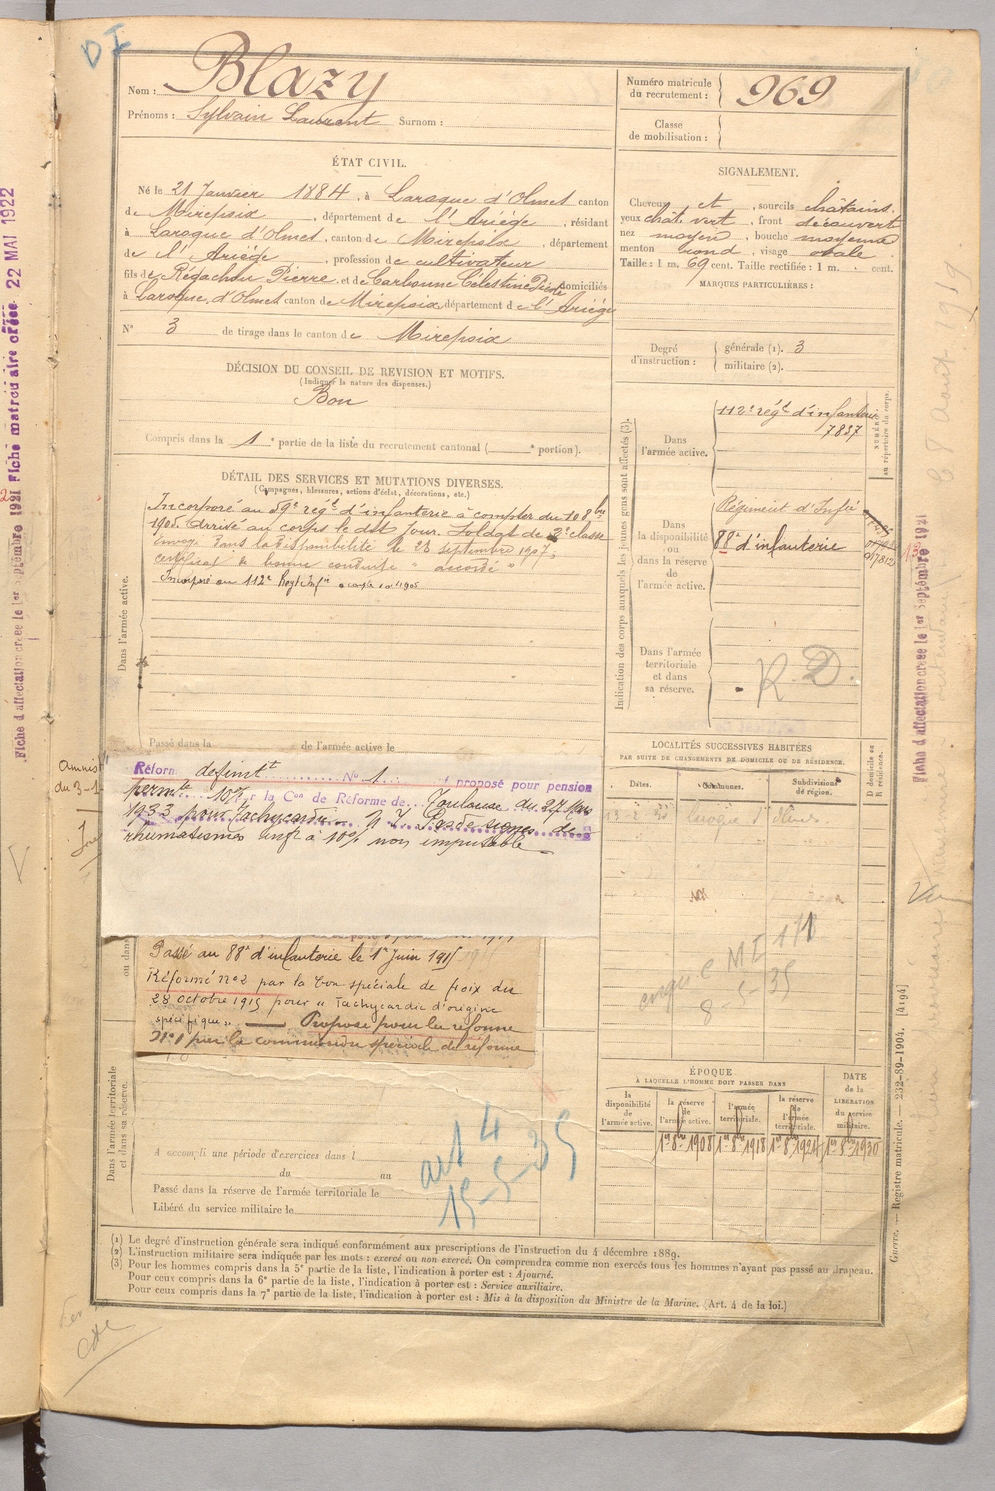 DI
Nom : Blazy
Prénoms : Sylvain Laurent Surnom :
Numéro matricule du recrutement : 969
Classe de mobilisation :
ÉTAT CIVIL.
Né le 21 Janvier 1884, à Laroque d'Olmes canton
de Mirepoix, département de l'Ariége, résidant
à Laroque d'Olmes, canton de Mirepoix, département
de l'Ariége, profession de cultivateur
fils de Régachou Pierre et de Carbonne Célestine domiciliés
à Laroque d'Olmes canton de Mirepoix département de l'Ariége
N° 3 de tirage dans le canton de Mirepoix
SIGNALEMENT.
Cheveux et, sourcils chatains.
yeux chat. vert, front découvert
nez moyen, bouche moyenne
menton rond, visage ovale.
Taille : 1 m. 69 cent. Taille rectifiée : 1 m. cent.
MARQUES PARTICULIÈRES :
Degré d'instruction : générale (1). 3
militaire (2).
DÉCISION DU CONSEIL DE REVISION ET MOTIFS.
(Indiquer la nature des dispenses.)
Bon
Compris dans la 1e partie de la liste du recrutement cantonal ( e portion).
DÉTAIL DES SERVICES ET MUTATIONS DIVERSES.
(Campagnes, blessures, actions d'éclat, décorations, etc.)
Dans l'armée active.
Incorporé au 59e régt d'infanterie à compter du 10 8bre
1905. Arrivé au corps le dit Jour. Soldat de 2e classe
envoyé dans la disponibilité le 28 septembre 1907,
certificat de bonne conduite "accordé"
Incorporé au 112e Regt Infie
Passé dans la de l'armée active le
Réform définitt N° 1 et proposé pour pension
permte 10% par la Con de Réforme de Toulouse du 27 Mars
1933 pour tachycardie. Pas de signes de
rhumatismes 10% non imputable
Passé au 88e d'infanterie le 1er Juin 1915
Réformé n°2 par la Con spéciale de Foix du
28 octobre 1915 pour "Tachycardie d'origine
spécifique". Proposé pour la réforme
N°1 par la commission spéciale de réforme
ou dans
Dans l'armée territoriale et dans sa réserve.
A accompli une période d'exercices dans l
du au
Passé dans la réserve de l'armée territoriale le
Libéré du service militaire le
art 4
15-5-35
Indication des corps auxquels les jeunes gens sont affectés (3).
Dans l'armée active.
112e régt d'infanterie
7837
NUMÉRO au répertoire du corps.
Dans la disponibilité ou dans la réserve de l'armée active.
Régiment d'Infie
88e d'infanterie
Dans l'armée territoriale et dans sa réserve.
R.D.
LOCALITÉS SUCCESSIVES HABITÉES
PAR SUITE DE CHANGEMENTS DE DOMICILE OU DE RÉSIDENCE.
Dates. Communes. Subdivisions de région.
D domicile ou R résidence.
Laroque d'Olmes
8-5-35
ÉPOQUE
À LAQUELLE L'HOMME DOIT PASSER DANS
la disponibilité de l'armée active.
la réserve de l'armée active.
l'armée territoriale.
la réserve de l'armée territoriale.
DATE de la LIBÉRATION du service militaire.
1er 8bre 1908 1er 8bre 1918 1er 8bre 1924 1er 8bre 1930
(1) Le degré d'instruction générale sera indiqué conformément aux prescriptions de l'instruction du 4 décembre 1889.
(2) L'instruction militaire sera indiquée par les mots : exercé ou non exercé. On comprendra comme non exercés tous les hommes n'ayant pas passé au drapeau.
(3) Pour les hommes compris dans la 5e partie de la liste, l'indication à porter est : Ajourné.
Pour ceux compris dans la 6e partie de la liste, l'indication à porter est : Service auxiliaire.
Pour ceux compris dans la 7e partie de la liste, l'indication à porter est : Mis à la disposition du Ministre de la Marine. (Art. 4 de la loi.)
Guerre. — Registre matricule. — 232-89-1904. [4194]
Fiche d'affectation créée le 1er Septembre 1921
Fiche d'affectation créée le 1er Septembre 1921 Fiche matriculaire créée 22 MAI 1922
Vu